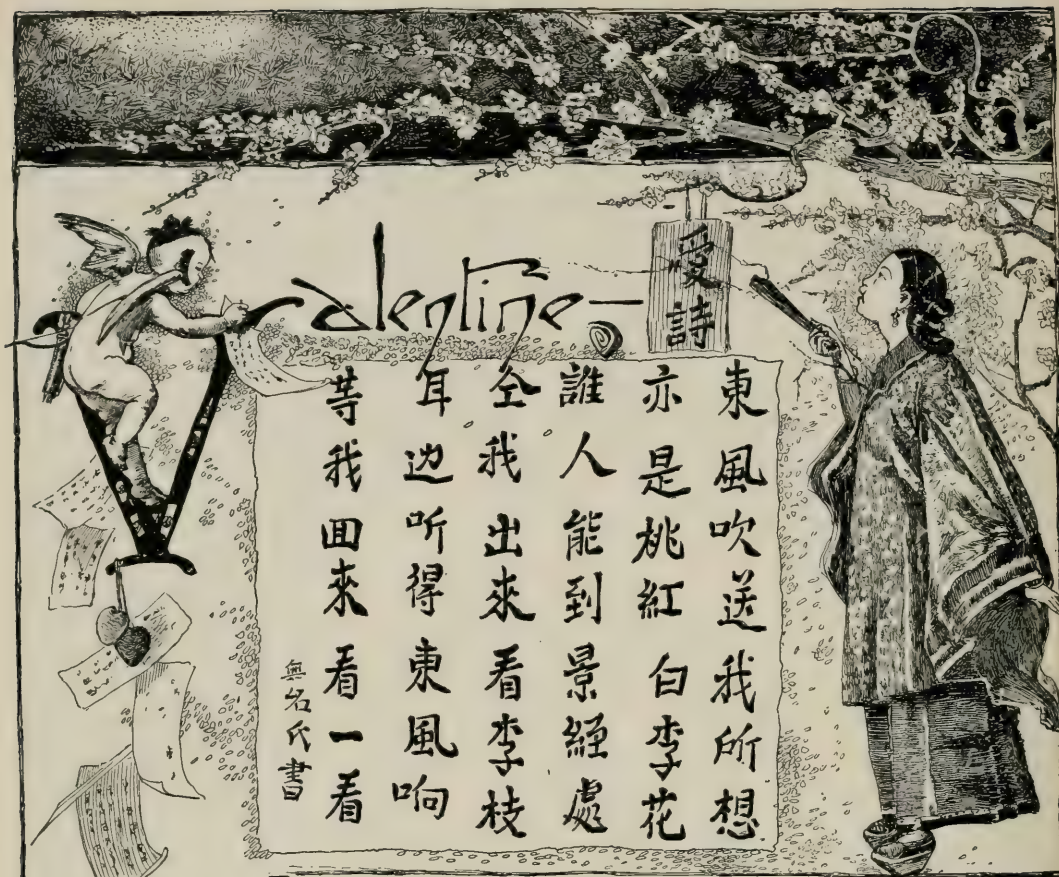 Valentine—
愛詩
東風吹送我所想
亦是桃紅白李花
誰人能到景經處
仝我出來看李枝
耳边听得東風响
等我囬來看一看
無名氏書